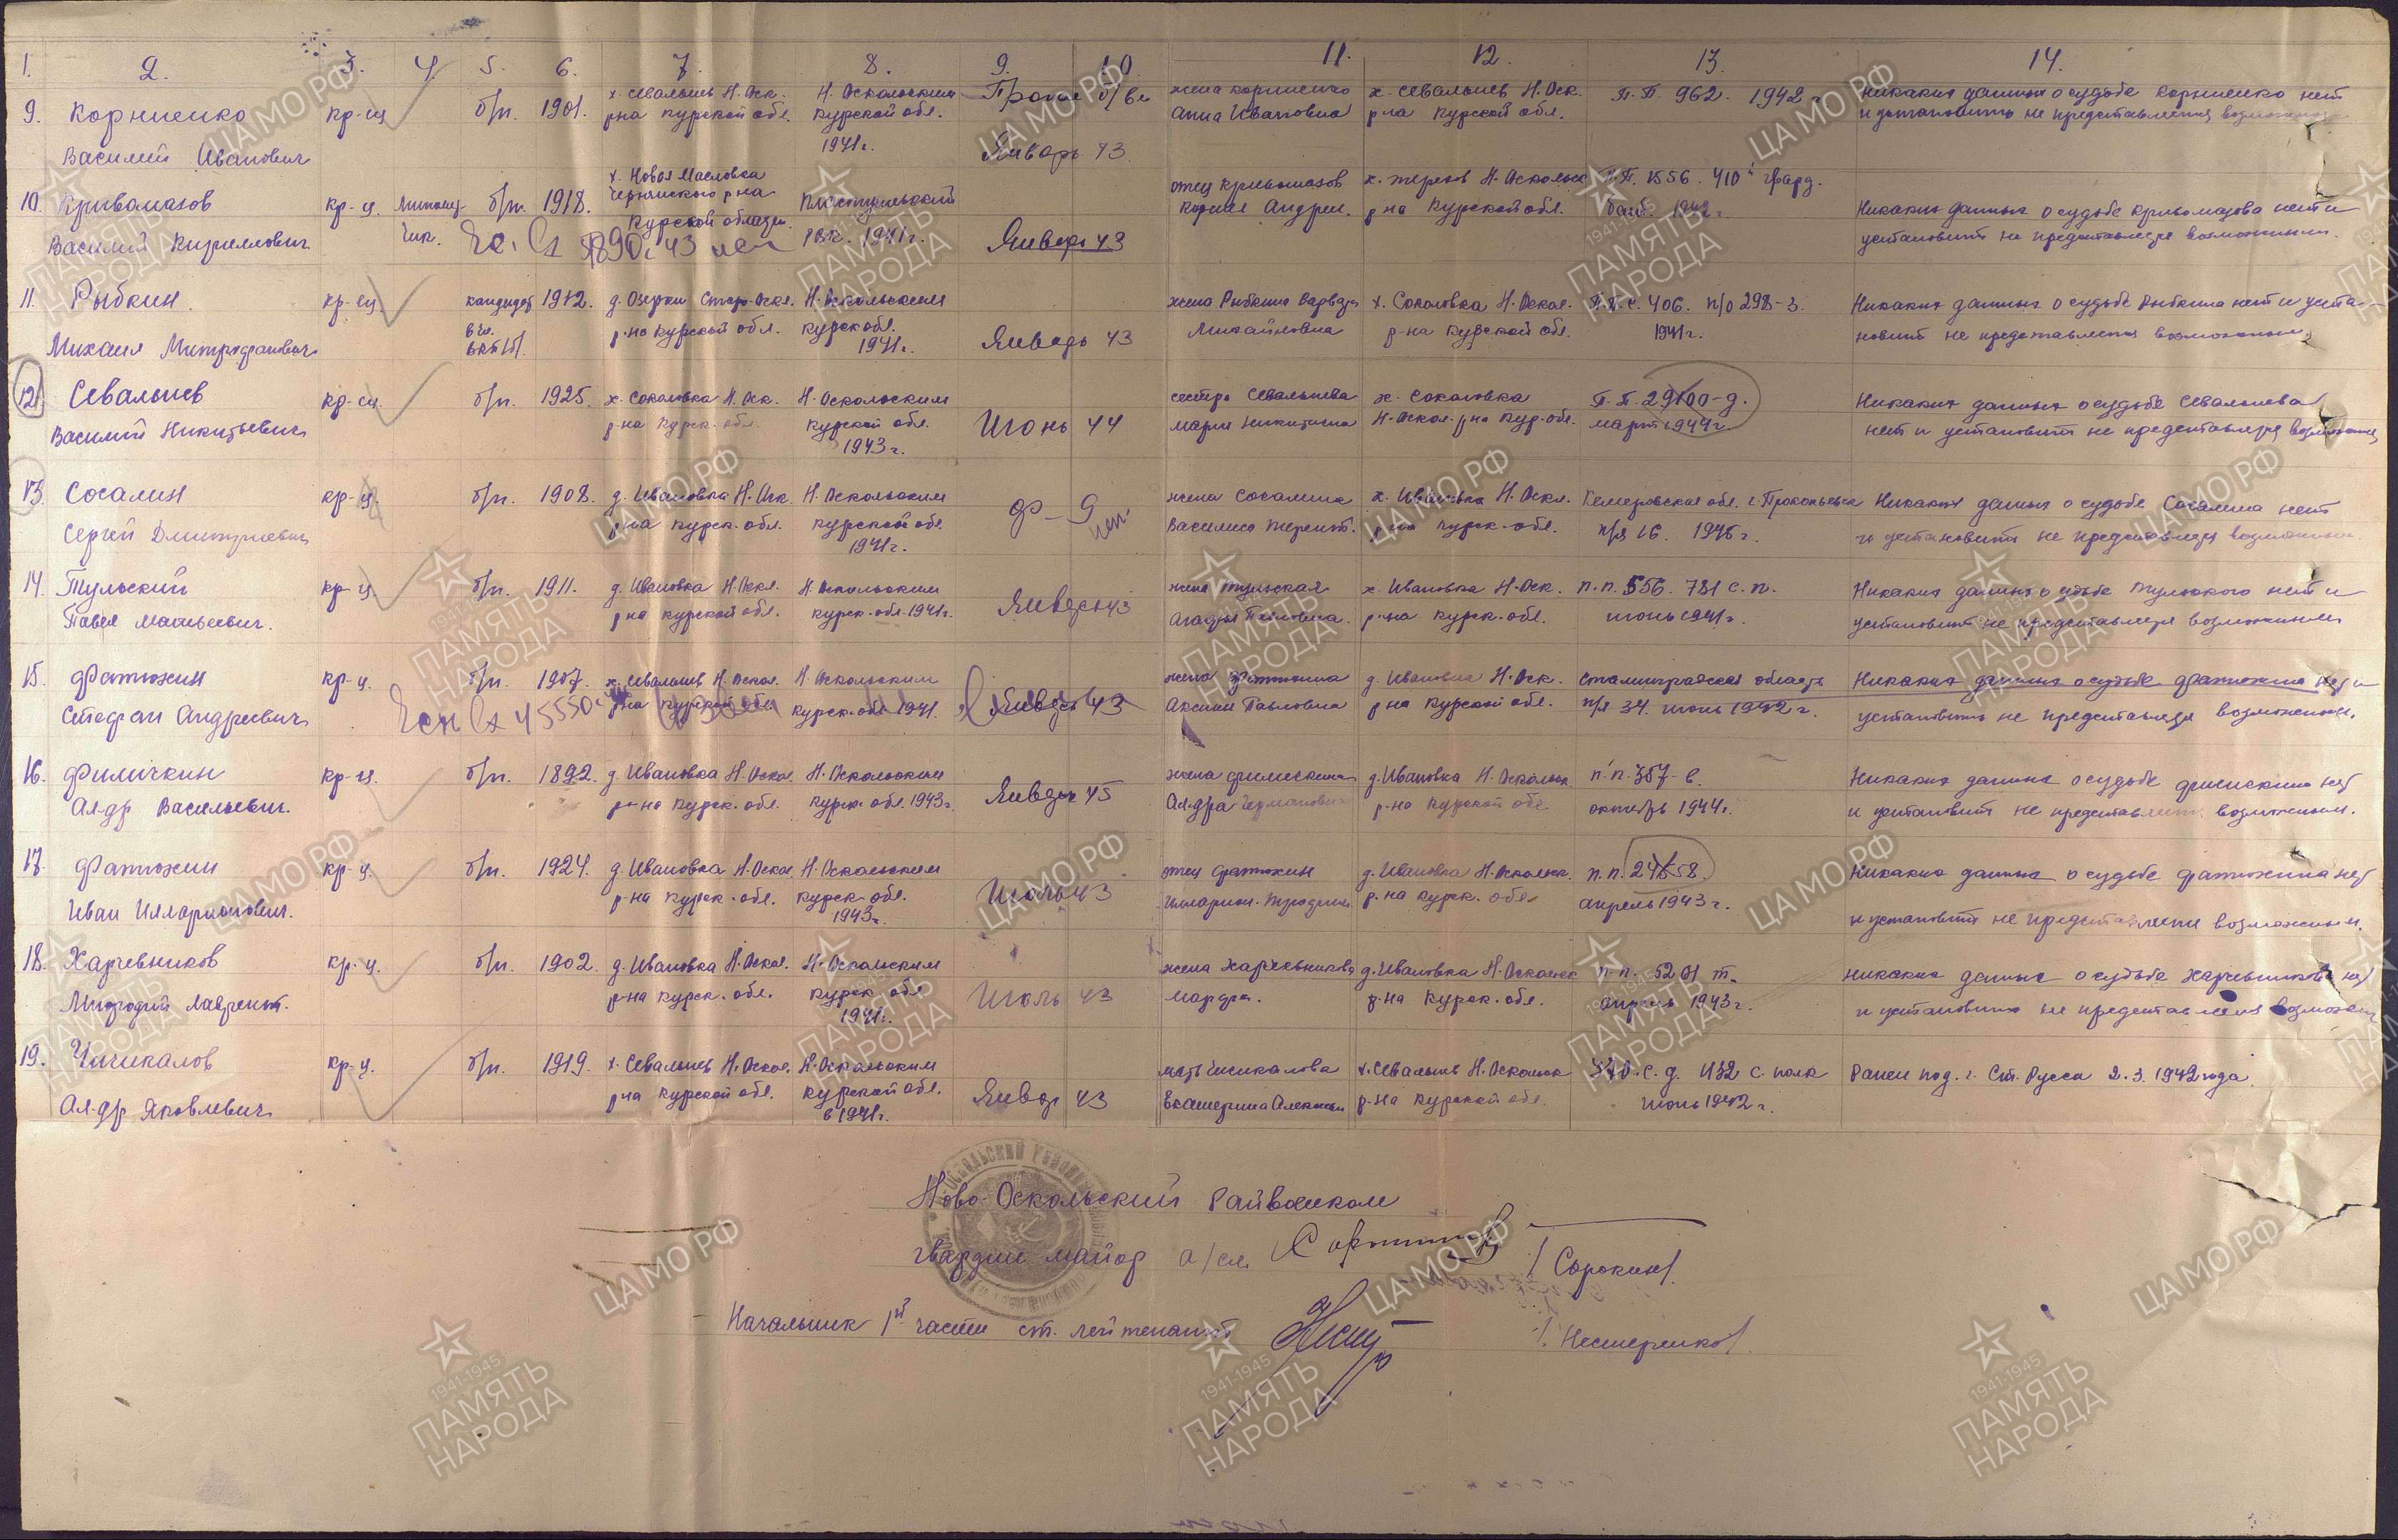 1. 2. 3. 4. 5. 6. 7. 8. 9. 10. 11. 12. 13. 14.
9. Корниенко кр-ц б/п. 1901. х. Севальнев Н. Оск. Н. Оскольским Пропал б/в жена Корниенко х. Севальнев Н. Оск. П. П. 962. 1942 г Никаких данных о судьбе Корниенко нет
Василий Иванович р-на Курской обл. Курской обл. Январь 43 Анна Ивановна р-на Курской обл. и установить не представляется
1941 г.
10. Кривомазов кр-ц. б/п. 1918. х. Новая Масловка отец Кривомазов Н. Оскольск П.П. 1556. 410
Василий Кириллович Чернянского р-на РВК. 1941 г. Январь 43 р-на Курской обл. Никаких данных о судьбе Кривомазова нет и
Курской области. установить не представляется возможным.
11. Рыбкин кр-ец. кандидат 1912. д. Озерки Стар. Оск. Н. Оскольским жена Рыбкина Варвара х. Соколовка Н. Оскол. 406. п/о 298-3. Никаких данных о судьбе Рыбкина нет и уста-
Михаил Митрофанович р-на Курской обл. Курск обл. Январь 43 Михайловна р-на Курской обл. 1941 г. новить не представляется возможным.
1941 г.
12. Севальнев кр-ец б/п. 1925. х. Соколовка Н. Оск. Н. Оскольским Июнь 44 сестра Севальнева х. Соколовка П. П. 29100-д. Никаких данных о судьбе Севальнева
Василий Никитьевич р-на Курск. обл. Курской обл. Мария Никитична Н. Оскол. р-на Кур. обл. март 1944 г нет и установить не представляется возможным
1943 г.
13. Сосалин кр-ц. б/п. 1908. д. Ивановка Н. Оск. Н. Оскольским жена Сосалина х. Ивановка Н. Оскл. Кемеровская обл. г. Прокопьевск Никаких данных о судьбе Сосалина нет
Сергей Дмитриевич р-на Курск. обл. Курской обл. Василиса Терент. р-на Курск. обл. п/я 16. и установить не представляется возможным.
1941 г.
14. Тульский кр-ц. б/п. 1911. д. Ивановка Н. Оскл. Н. Оскольским Январь 43 жена Тульская х. Ивановка Н. Оск. п. п. 556. 781 с. п. Никаких данных о судьбе Тульского нет и
Павел Матвеевич. р-на Курской обл. Курск. обл. 1941 г. Агафья Павловна. р-на Курск. обл. июнь 1941 г. установить не представляется возможным
15. Фатюхин кр-ц. б/п. 1907. х. Севальнев Н. Оскол. Н. Оскольским Январь 43 жена Фатюхина д. Ивановка Н. Оск. Сталинградская область Никаких данных о судьбе Фатюхина нет и
Стефан Андреевич р-на Курской обл. Курск. обл. 1941. Аксинья Павловна р-на Курской обл. п/я 34. июнь 1942 г. установить не представляется возможным.
16. Филичкин кр-ц. б/п. 1892. д. Ивановка Н. Оскол. Н. Оскольским Январь 45 жена Филичкина д. Ивановка Н. Оскольск. п. п. 357-в. Никаких данных о судьбе Филичкина нет
Ал-др Васильевич. р-на Курск. обл. Курск. обл. 1943 г. Ал-дра р-на Курской обл. октябрь 1944 г. и установить не представляется возможным.
17. Фатюхин кр-ц. б/п. 1924. д. Ивановка Н. Оскол. Н. Оскольским отец Фатюхин д. Ивановка Н. Оскольск. п. п. Никаких данных о судьбе Фатюхина нет
Иван Илларионович. р-на Курск. обл. Курск. обл. Илларион. р-на Курск. обл. апрель 1943 г. и установить не представляется возможным.
1943 г.
18. Харчевников кр-ц. б/п. 1902. д. Ивановка Н. Оскол. Н. Оскольским Июль 43 жена Харчевникова д. Ивановка Н. Оскольск п. п. Никаких данных о судьбе Харчевникова нет
Мифодий Лаврент. р-на Курск. обл. Курск. обл. Марфа. р-на Курск. обл. апрель 1943 г. и установить не представляется возможн
1941 г.
19. Чичикалов кр-ц. б/п. 1919. х. Севальнев Н. Оскол. Н. Оскольским Январ 43 мать Чичикалова х. Севальнев Н. Оскольск с. д. 1132 с. полк Ранен под. г. Ст. Русса 2. 3. 1942 года.
Ал-др Яковлевич р-на Курской обл. Курской обл. Екатерина р-на Курской обл. июнь 1942 г.
в 1941 г.
Ново-Оскольский Райвоенком
гвардии майор а/сл. /Сорокин/.
Начальник 1й части ст. лейтенант /Нестеренко/.
ЦАМО РФ
1941-1945
ПАМЯТЬ
НАРОДА